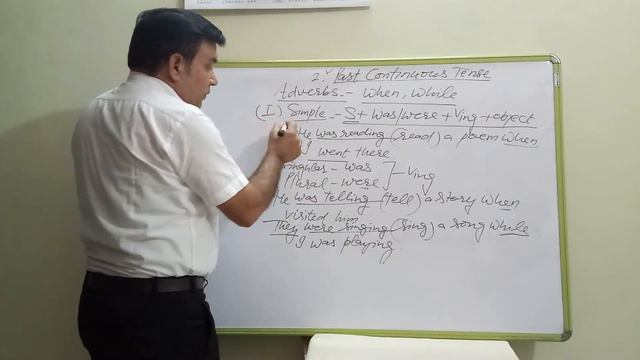 2. Past Continuous Tense
Adverbs - when, while
(I) Simple - S + was/were + Ving + object
He was reading (read) a poem when
I went there
Singular - was
Plural - were
- Ving
He was telling (tell) a story when
visited him
They were singing (sing) a song while
I was playing.